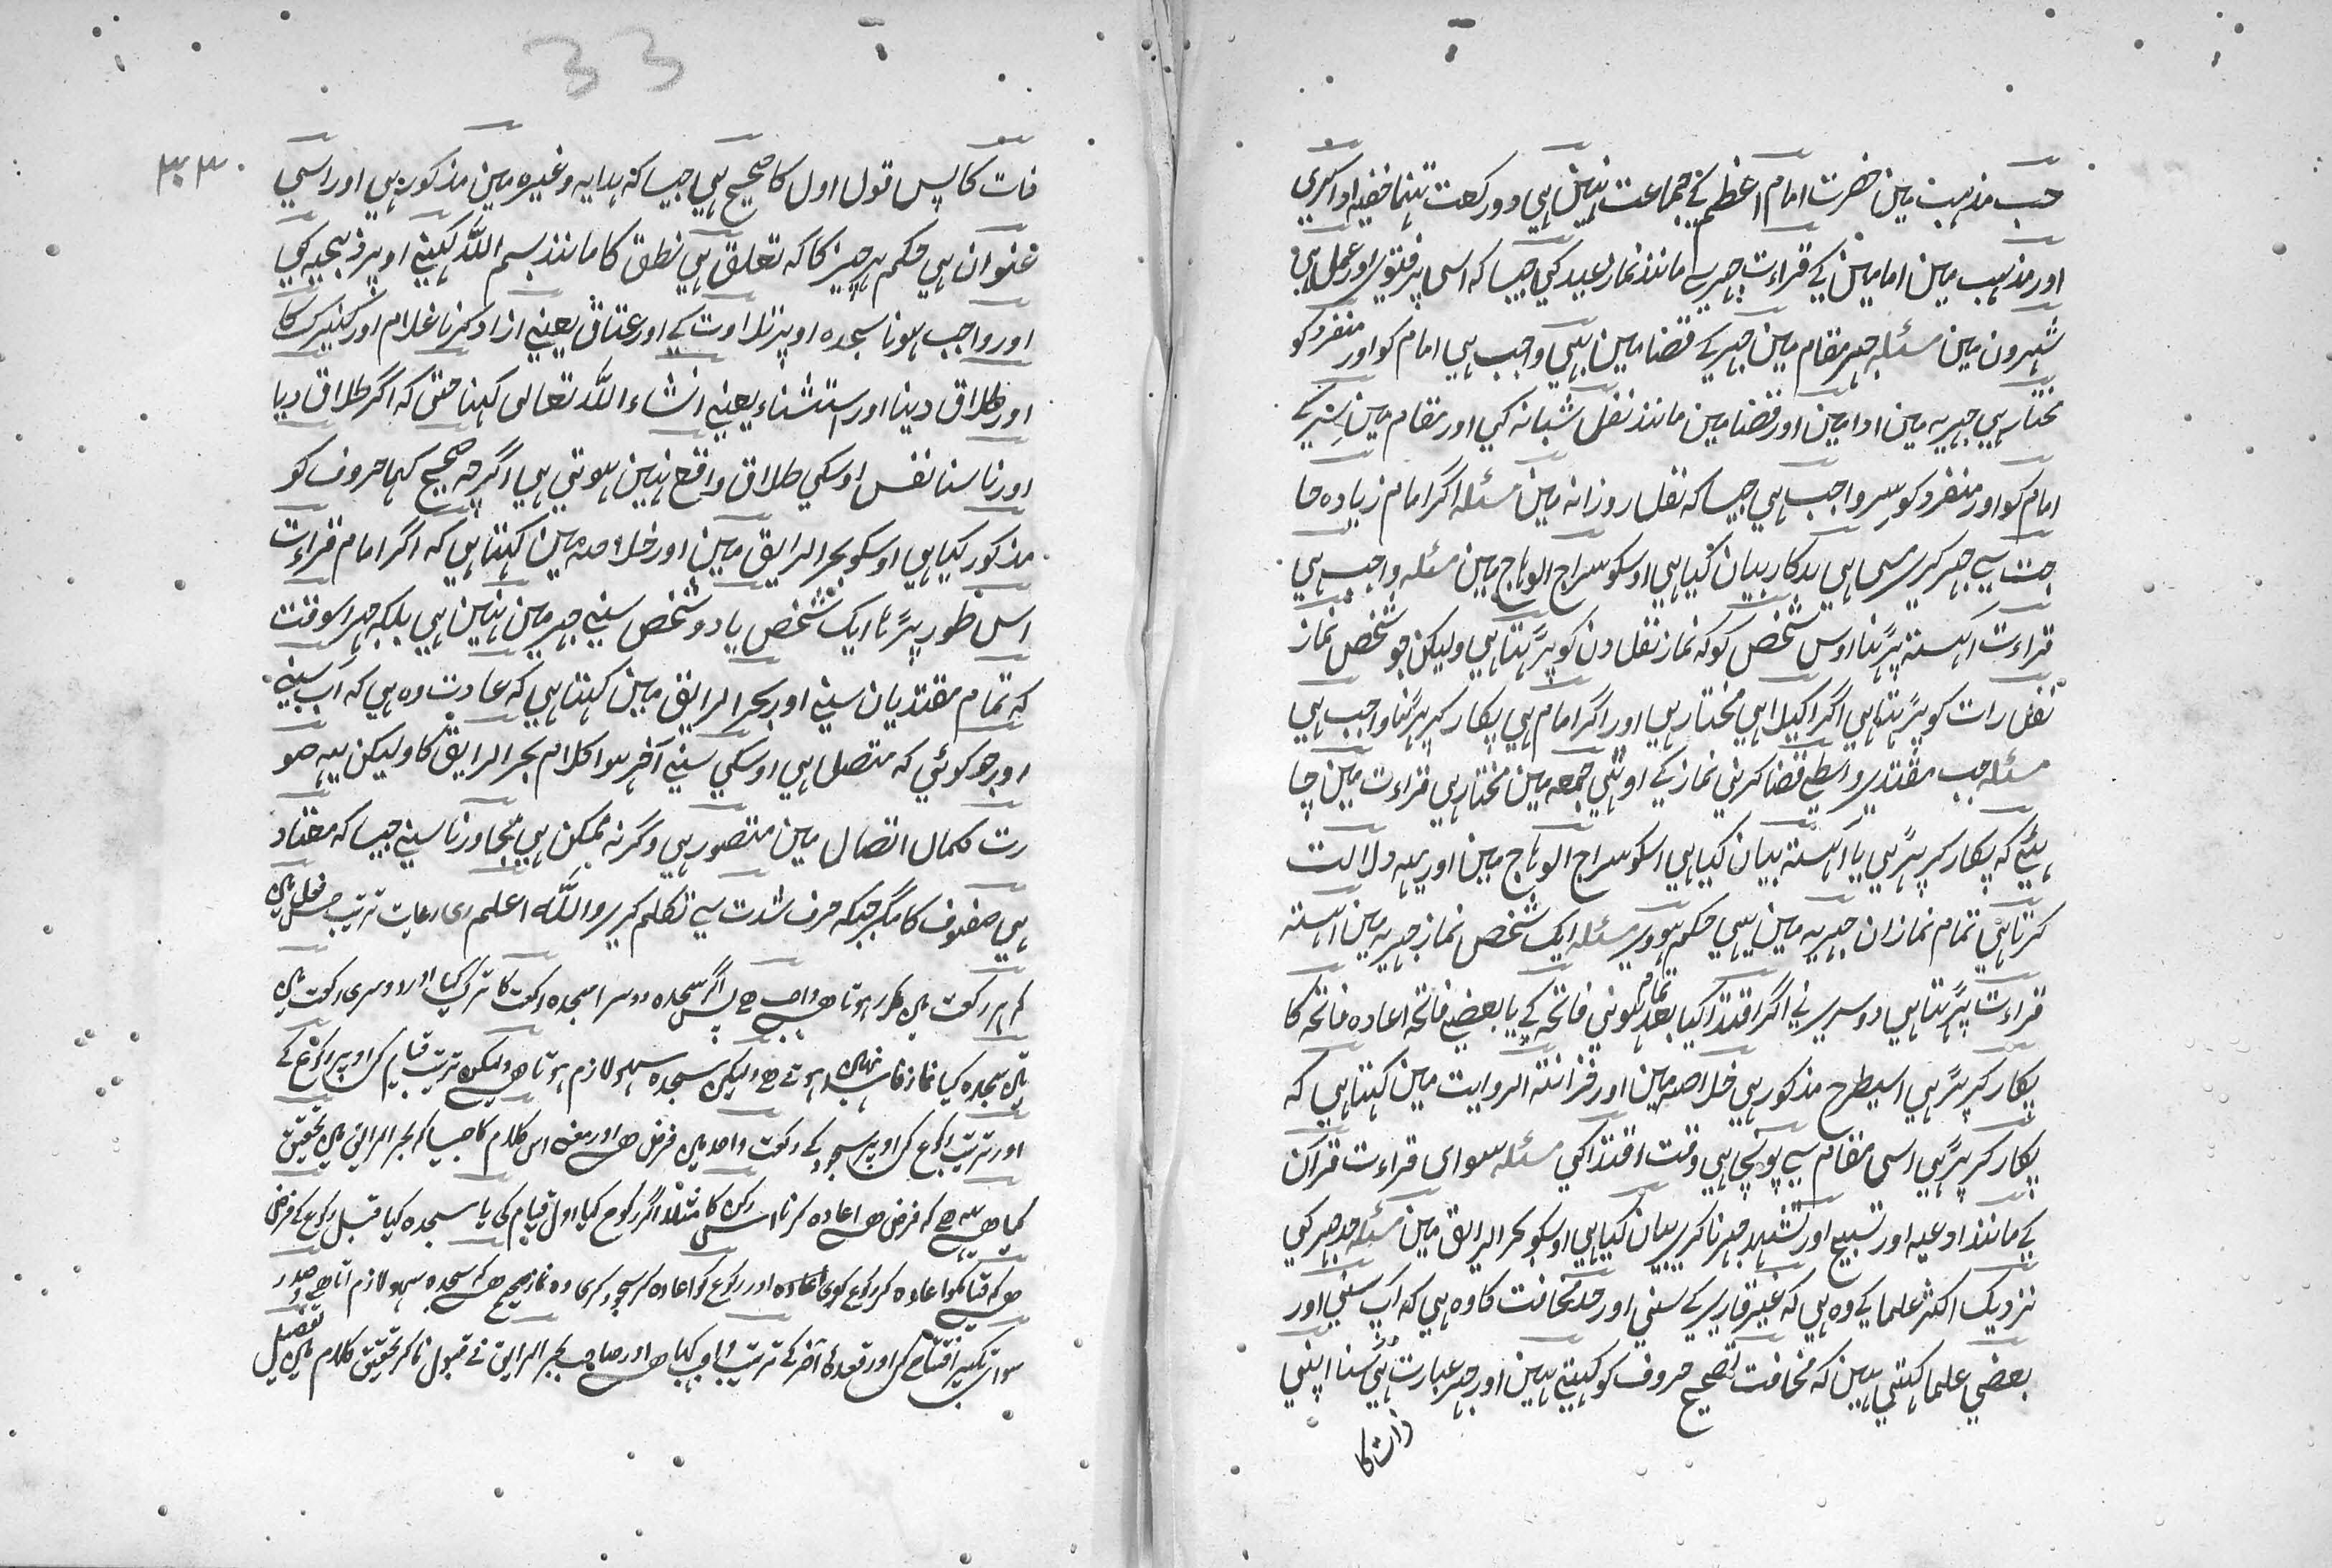 حسب مذہب مین حضرت امام اعظم کے جماعت نہین ہی دو رکعت تنہا خفیہ ادا کری
اور مذہب مین امامین کے قراءت جہر سے مانند نماز عید کی جیسا کہ اسی پر فتوی اور عمل ہی
شہرون مین مسئلہ جہر مقام مین جہر کے قضا مین بہی واجب ہی امام کو اور منفرد کو
مختار ہی جہریہ مین ادا مین اور قضا مین مانند نفل شبانہ کی اور مقام مین سِر کے
امام کو اور منفرد کو سِر واجب ہی جیسا کہ نفل روزانہ مین مسئلہ اگر امام زیادہ حا
جت سے جہر کرے سی ہی بدکار بیان کیا ہی اوسکو سراج الوہاج مین مسئلہ واجب ہی
قراءت اہستہ پڑہنا اوس شخص کو کہ نماز نفل دن کو پڑہتا ہی ولیکن جو شخص نماز
نفل رات کو پڑہتا ہی اگر اکیلا ہی مختار ہی اور اگر امام ہی پکار کر پڑہنا واجب ہی
مسئلہ جب مقتدی واسطے قضا کرنی نماز کے اوٹہی جمعہ مین مختار ہی قراءت مین چا
ہئے کہ پکار کر پڑہی یا آہستہ بیان کیا ہی اسکو سراج الوہاج مین اور یہہ دلالت
کرتا ہی تمام نمازان جہریہ مین یہی حکم ہووے مسئلہ ایک شخص نماز جہریہ مین اہستہ
قراءت پڑہتا ہی دوسرے نی اگر اقتدا کیا بعد تمام ہونی فاتحہ کے یا بعضے فاتحہ اعادہ فاتحہ کا
پکار کر پڑہی اسیطرح مذکور ہی خلاصہ مین اور خزانتہ الروایت مین کہتا ہی کہ
پکار کر پڑہی اسی مقام سے پونچا ہی وقت اقتدا کی مسئلہ سوای قراءت قرآن
کے مانند ادعیہ اور تسبیح اور تشہد جہر نا کرے بیان کیا ہی اوسکو بحر الرایق مین مسئلہ حد جہر کی
نزدیک اکثر علما کے وہ ہی کہ غیر قاری کے سنی اور حد مخافت کا وہ ہی کہ آپ سنی اور
بعضی علما کہتی ہین کہ مخافت تصحیح حروف کو کہتے ہین اور جہر عبارت ہی سنا اپنی
ذات کا
۳۳
33
ذات کا پس قول اول کا صحیح ہی جیسا کہ ہدایہ وغیرہ مین مذکور ہی اور اسی
عنوان ہی حکم ہر چیز کا کہ تعلق ہی نطق کا مانند بسم اللّٰہ کہنے اوپر ذبیحہ کی
اور واجب ہونا سجدہ اوپر تلاوت کے اور عتاق یعنے ازاد کرنا غلام اور کنیزک کا
اور طلاق دینا اور استثناء یعنے انشاء اللّٰہ تعالی کہنا حتی کہ اگر طلاق دیا
اور نا سنا نفس اوسکی طلاق واقع نہین ہوتی ہی اگرچہ صحیح کہا حروف کو
مذکور کیا ہی اوسکو بحر الرایق مین اور خلاصہ مین کہتا ہی کہ اگر امام قراءت
اس طور پڑہا ایک شخص یا دو شخص سنے جہر مین نہین ہی بلکہ جہر اسوقت
کہ تمام مقتدیان سنے اور بحر الرایق مین کہتا ہی کہ عادت وہ ہی کہ آپ سنے
اور جو کوئی کہ متصل ہی اوسکی سنے آخر ہوا کلام بحر الرایق کا ولیکن یہہ صو
رت کمال اتصال مین متصور ہی وگرنہ ممکن ہی مجاور نا سنے جیسا کہ معتاد
ہی صفوف کا مگر جبکہ حرف شدت سے تکلم کرے واللّٰہ اعلم رعایت ترتیب جس فعل مین
کہ ہر رکعت مین مکرر ہوتا ہے واجب ہے پس اگر سجدہ دوسرا سجدہ رکعت کا ترک کیا اور دوسری رکعت مین
تین سجدہ کیا نماز فاسد نہین ہوتے ہے ولیکن سجدہ سہو لازم ہوتا ہے ولیکن ترتیب قیام کی اوپر رکوع کے
اور ترتیب رکوع کی اوپر سجود کے رکعت واحد مین فرض ہے اور معنے اس کلام کا جیسا کہ بحر الرائق مین تحقیق
کیا ہے یہہ ہے کہ فرض ہے اعادہ کرنا اسی رکن کا مثلاً اگر رکوع کیا اول قیام کی یا سجدہ کیا قبل رکوع کے فرض
ہے کہ قیام کو اعادہ کر رکوع کری اور رکوع کو اعادہ کر سجود کری وہ نماز صحیح ہے کہ سجدہ سہو لازم آتا ہے
سوای تکبیر افتتاح کی اور قعدۂ آخر کے ترتیب واجب کیا ہے اور صاحب بحر الرایق نے قبول نا کر تحقیق کلام مین تفصیل